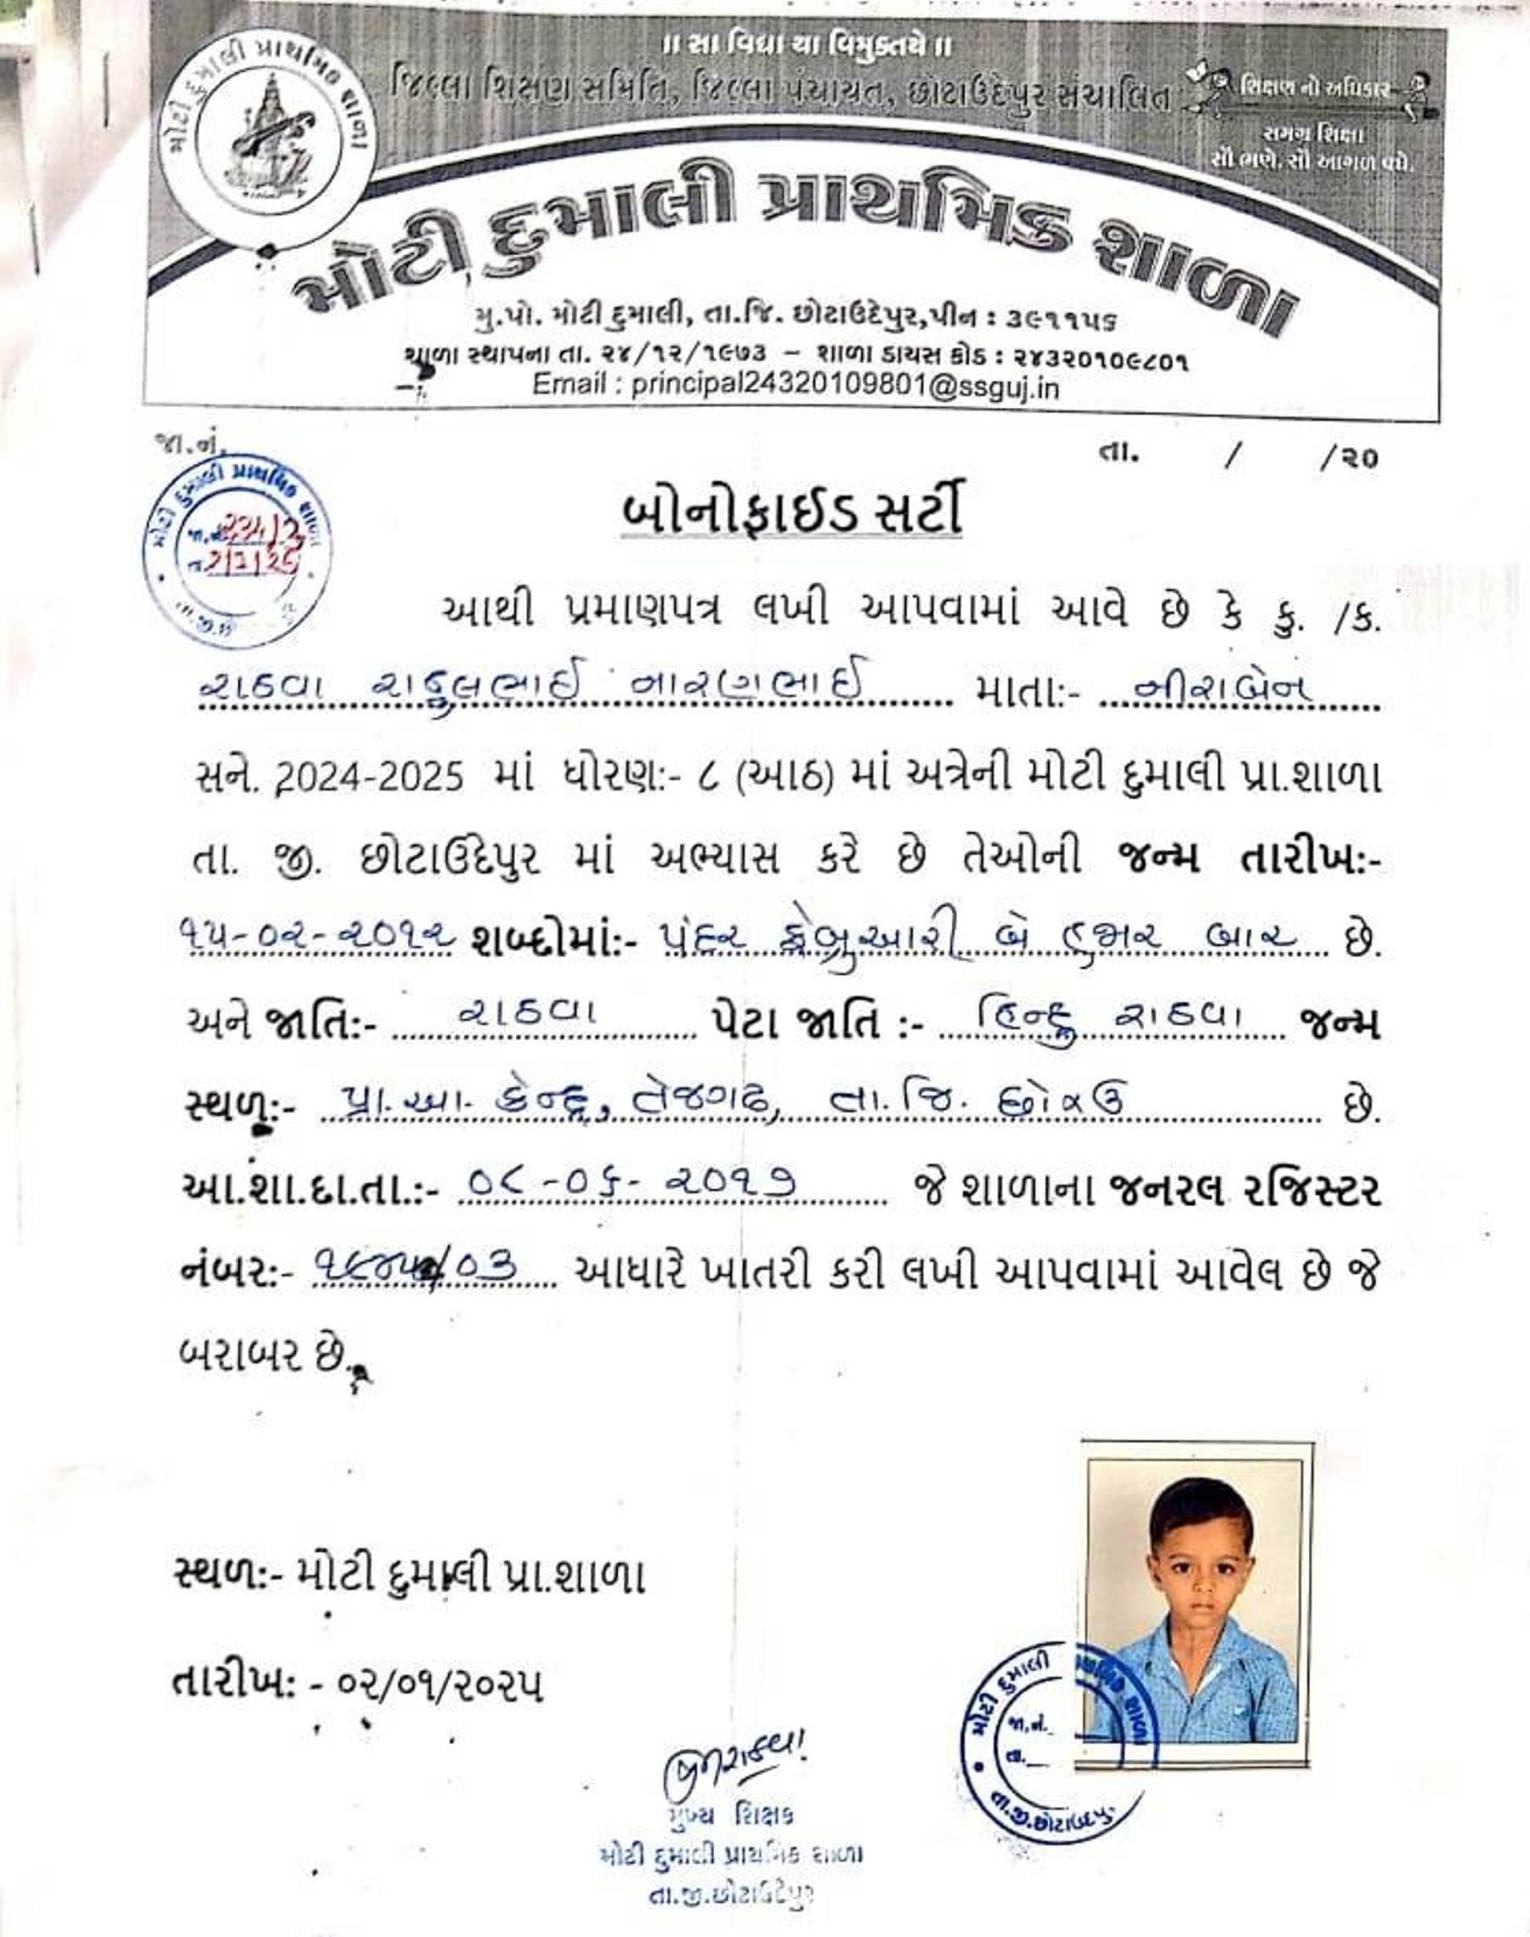 ॥ સા વિદ્યા યા વિમુક્તયે ॥
જિલ્લા શિક્ષણ સમિતિ, જિલ્લા પંચાયત, છોટાઉદેપુર સંચાલિત
શિક્ષણ નો અધિકાર
સમગ્ર શિક્ષા
સૌ ભણે. સૌ આગળ વધે.
મોટી દુમાલી પ્રાથમિક શાળા
મોટી દુમાલી પ્રાથમિક શાળા
મુ.પો. મોટી દુમાલી, તા.જિ. છોટાઉદેપુર,પીન : ૩૯૧૧૫૬
શાળા સ્થાપના તા. ૨૪/૧૨/૧૯૭૩ – શાળા ડાયસ કોડ : ૨૪૩૨૦૧૦૯૮૦૧
Email : principal24320109801@ssguj.in
જા.નં.
તા. / /૨૦
મોટી દુમાલી પ્રાથમિક શાળા
જા.નં.
તા.
બોનોફાઈડ સર્ટી
આથી પ્રમાણપત્ર લખી આપવામાં આવે છે કે કુ. /ક.
રાઠવા રાહુલભાઈ નારણભાઈ માતા:- નીરાબેન
સને. 2024-2025 માં ધોરણ:- ૮ (આઠ) માં અત્રેની મોટી દુમાલી પ્રા.શાળા
તા. જી. છોટાઉદેપુર માં અભ્યાસ કરે છે તેઓની જન્મ તારીખ:-
૧૫-૦૨-૨૦૧૨ શબ્દોમાં:- પંદર ફેબ્રુઆરી બે હજાર બાર છે.
અને જાતિ:- રાઠવા પેટા જાતિ :- હિન્દુ રાઠવા જન્મ
સ્થળ:- પ્રા.આ. કેન્દ્ર, તેજગઢ, તા.જિ. છો૰ઉ છે.
આ.શા.દા.તા.:- ૦૮-૦૬-૨૦૧૭ જે શાળાના જનરલ રજિસ્ટર
નંબર:- /૦૩ આધારે ખાતરી કરી લખી આપવામાં આવેલ છે જે
બરાબર છે.
સ્થળ:- મોટી દુમાલી પ્રા.શાળા
તારીખ: - ૦૨/૦૧/૨૦૨૫
મુખ્ય શિક્ષક
મોટી દુમાલી પ્રાથમિક શાળા
તા.જી.છોટાઉદેપુર
મોટી દુમાલી પ્રાથમિક શાળા
જા.નં.
તા.
તા.જી.છોટાઉદેપુર